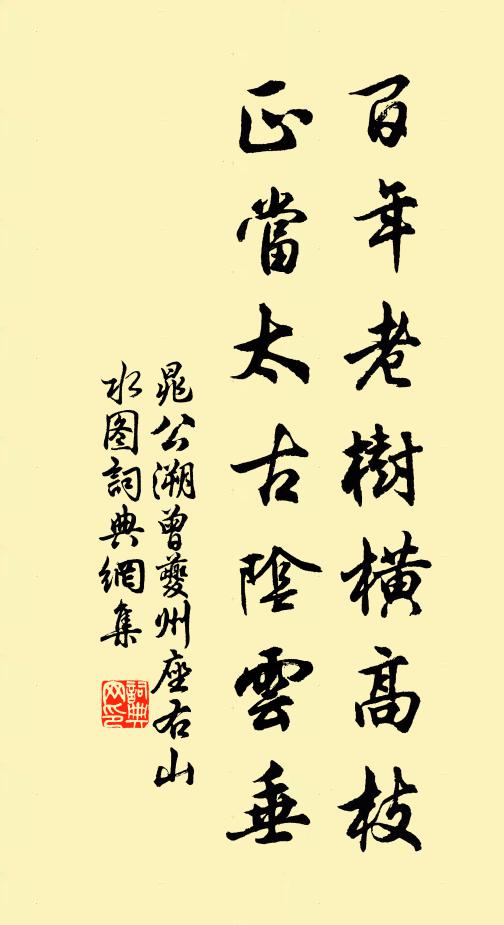 百年老樹橫高枝
正當太古陰雲垂
晁公溯曾夔州座右山
水图詞典網集
詞典
网印